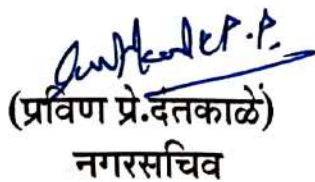 (प्रविण प्रे.दंतकाळें)
नगरसचिव